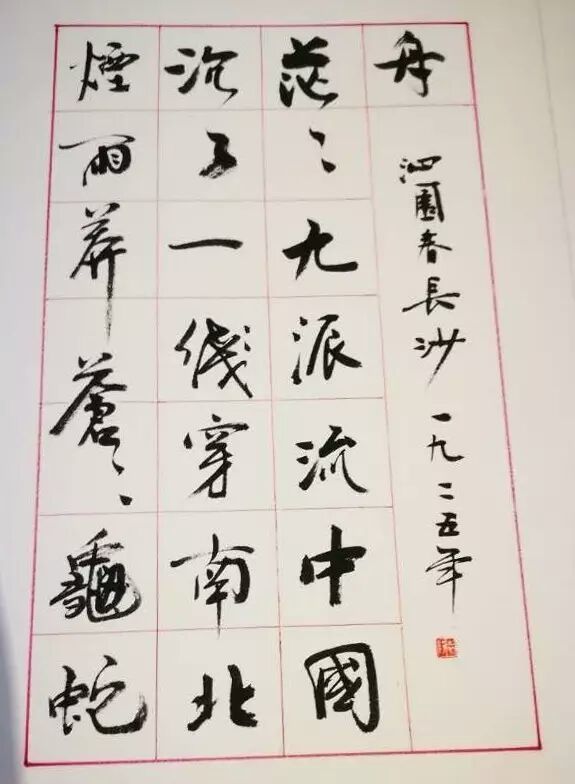 舟
沁園春長沙 一九二五年
茫〻九派流中國
沉〻一綫穿南北
煙雨莽蒼〻龜蛇